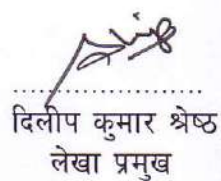 दिलीप कुमार श्रेष्ठ
लेखा प्रमुख